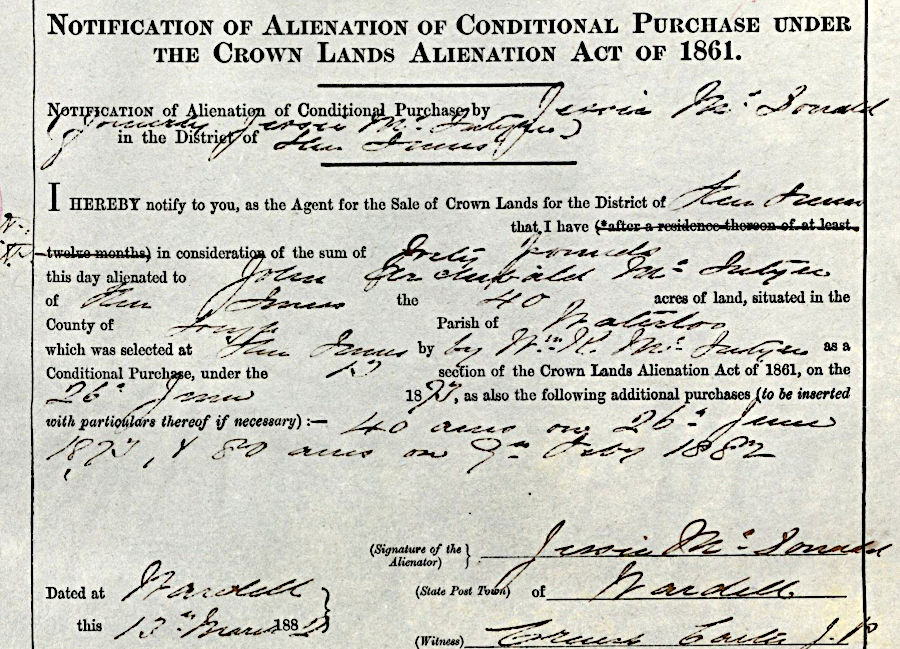 NOTIFICATION OF ALIENATION OF CONDITIONAL PURCHASE UNDER
THE CROWN LANDS ALIENATION ACT OF 1861.
NOTIFICATION of Alienation of Conditional Purchase by Jessie Mc Donald
(formerly Jessie Mc Intyre)
in the District of Glen Innes
I HEREBY notify to you, as the Agent for the Sale of Crown Lands for the District of Glen Innes
that I have (*after a residence thereon of at least
twelve months) in consideration of the sum of Forty pounds
this day alienated to John Archibald Mc Intyre
of Glen Innes the 40 acres of land, situated in the
County of Gough Parish of Waterloo
which was selected at Glen Innes by by Wm. K. Mc Intyre as a
Conditional Purchase, under the 13 section of the Crown Lands Alienation Act of 1861, on the
26th June 1873, as also the following additional purchases (to be inserted
with particulars thereof if necessary) :— 40 acres on 26th June
1873, & 80 acres on 9th Feby 1882
(Signature of the Alienator) Jessie Mc Donald
Dated at Wardell (State Post Town) of Wardell
this 13th March 188
(Witness) J.P.